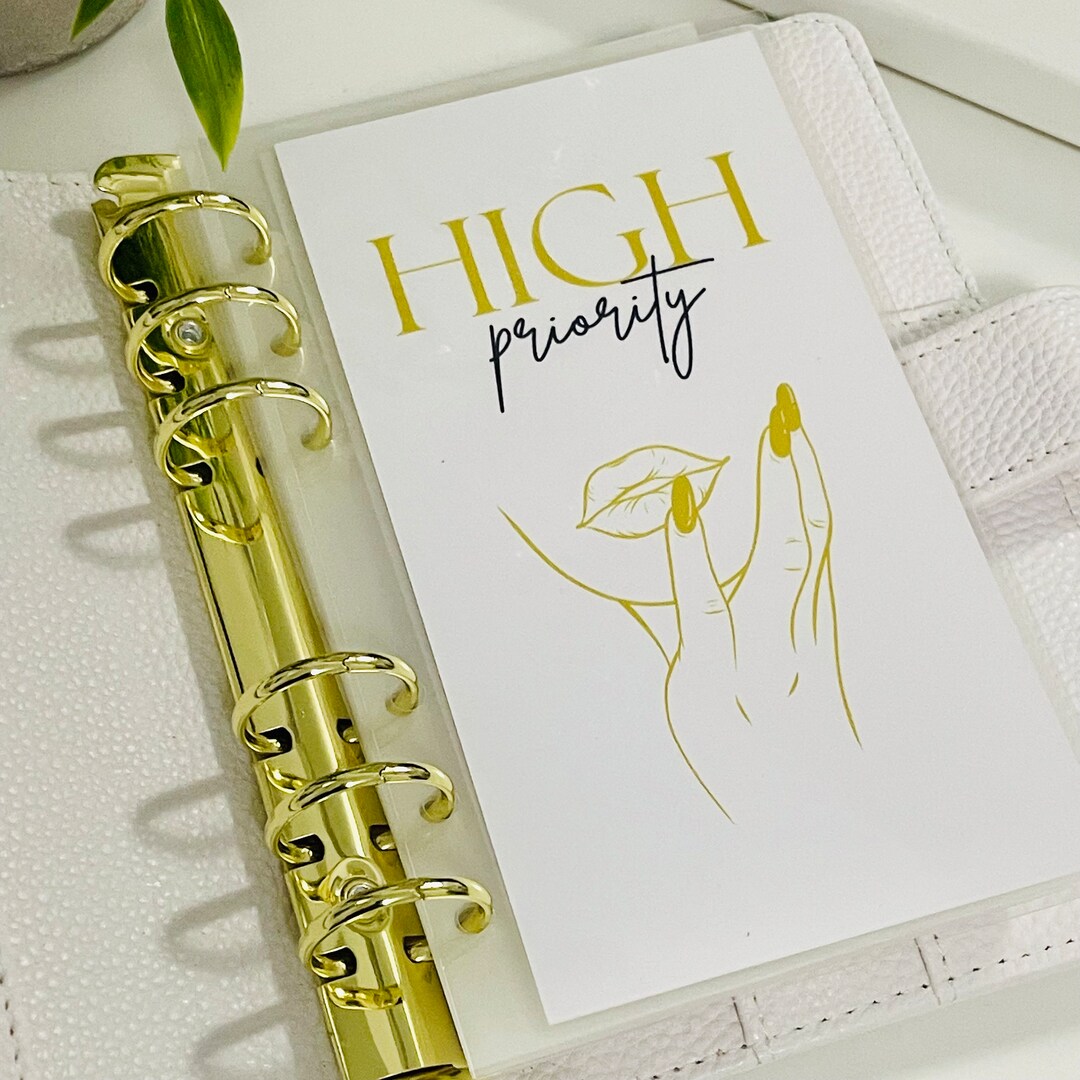 HIGH
priority